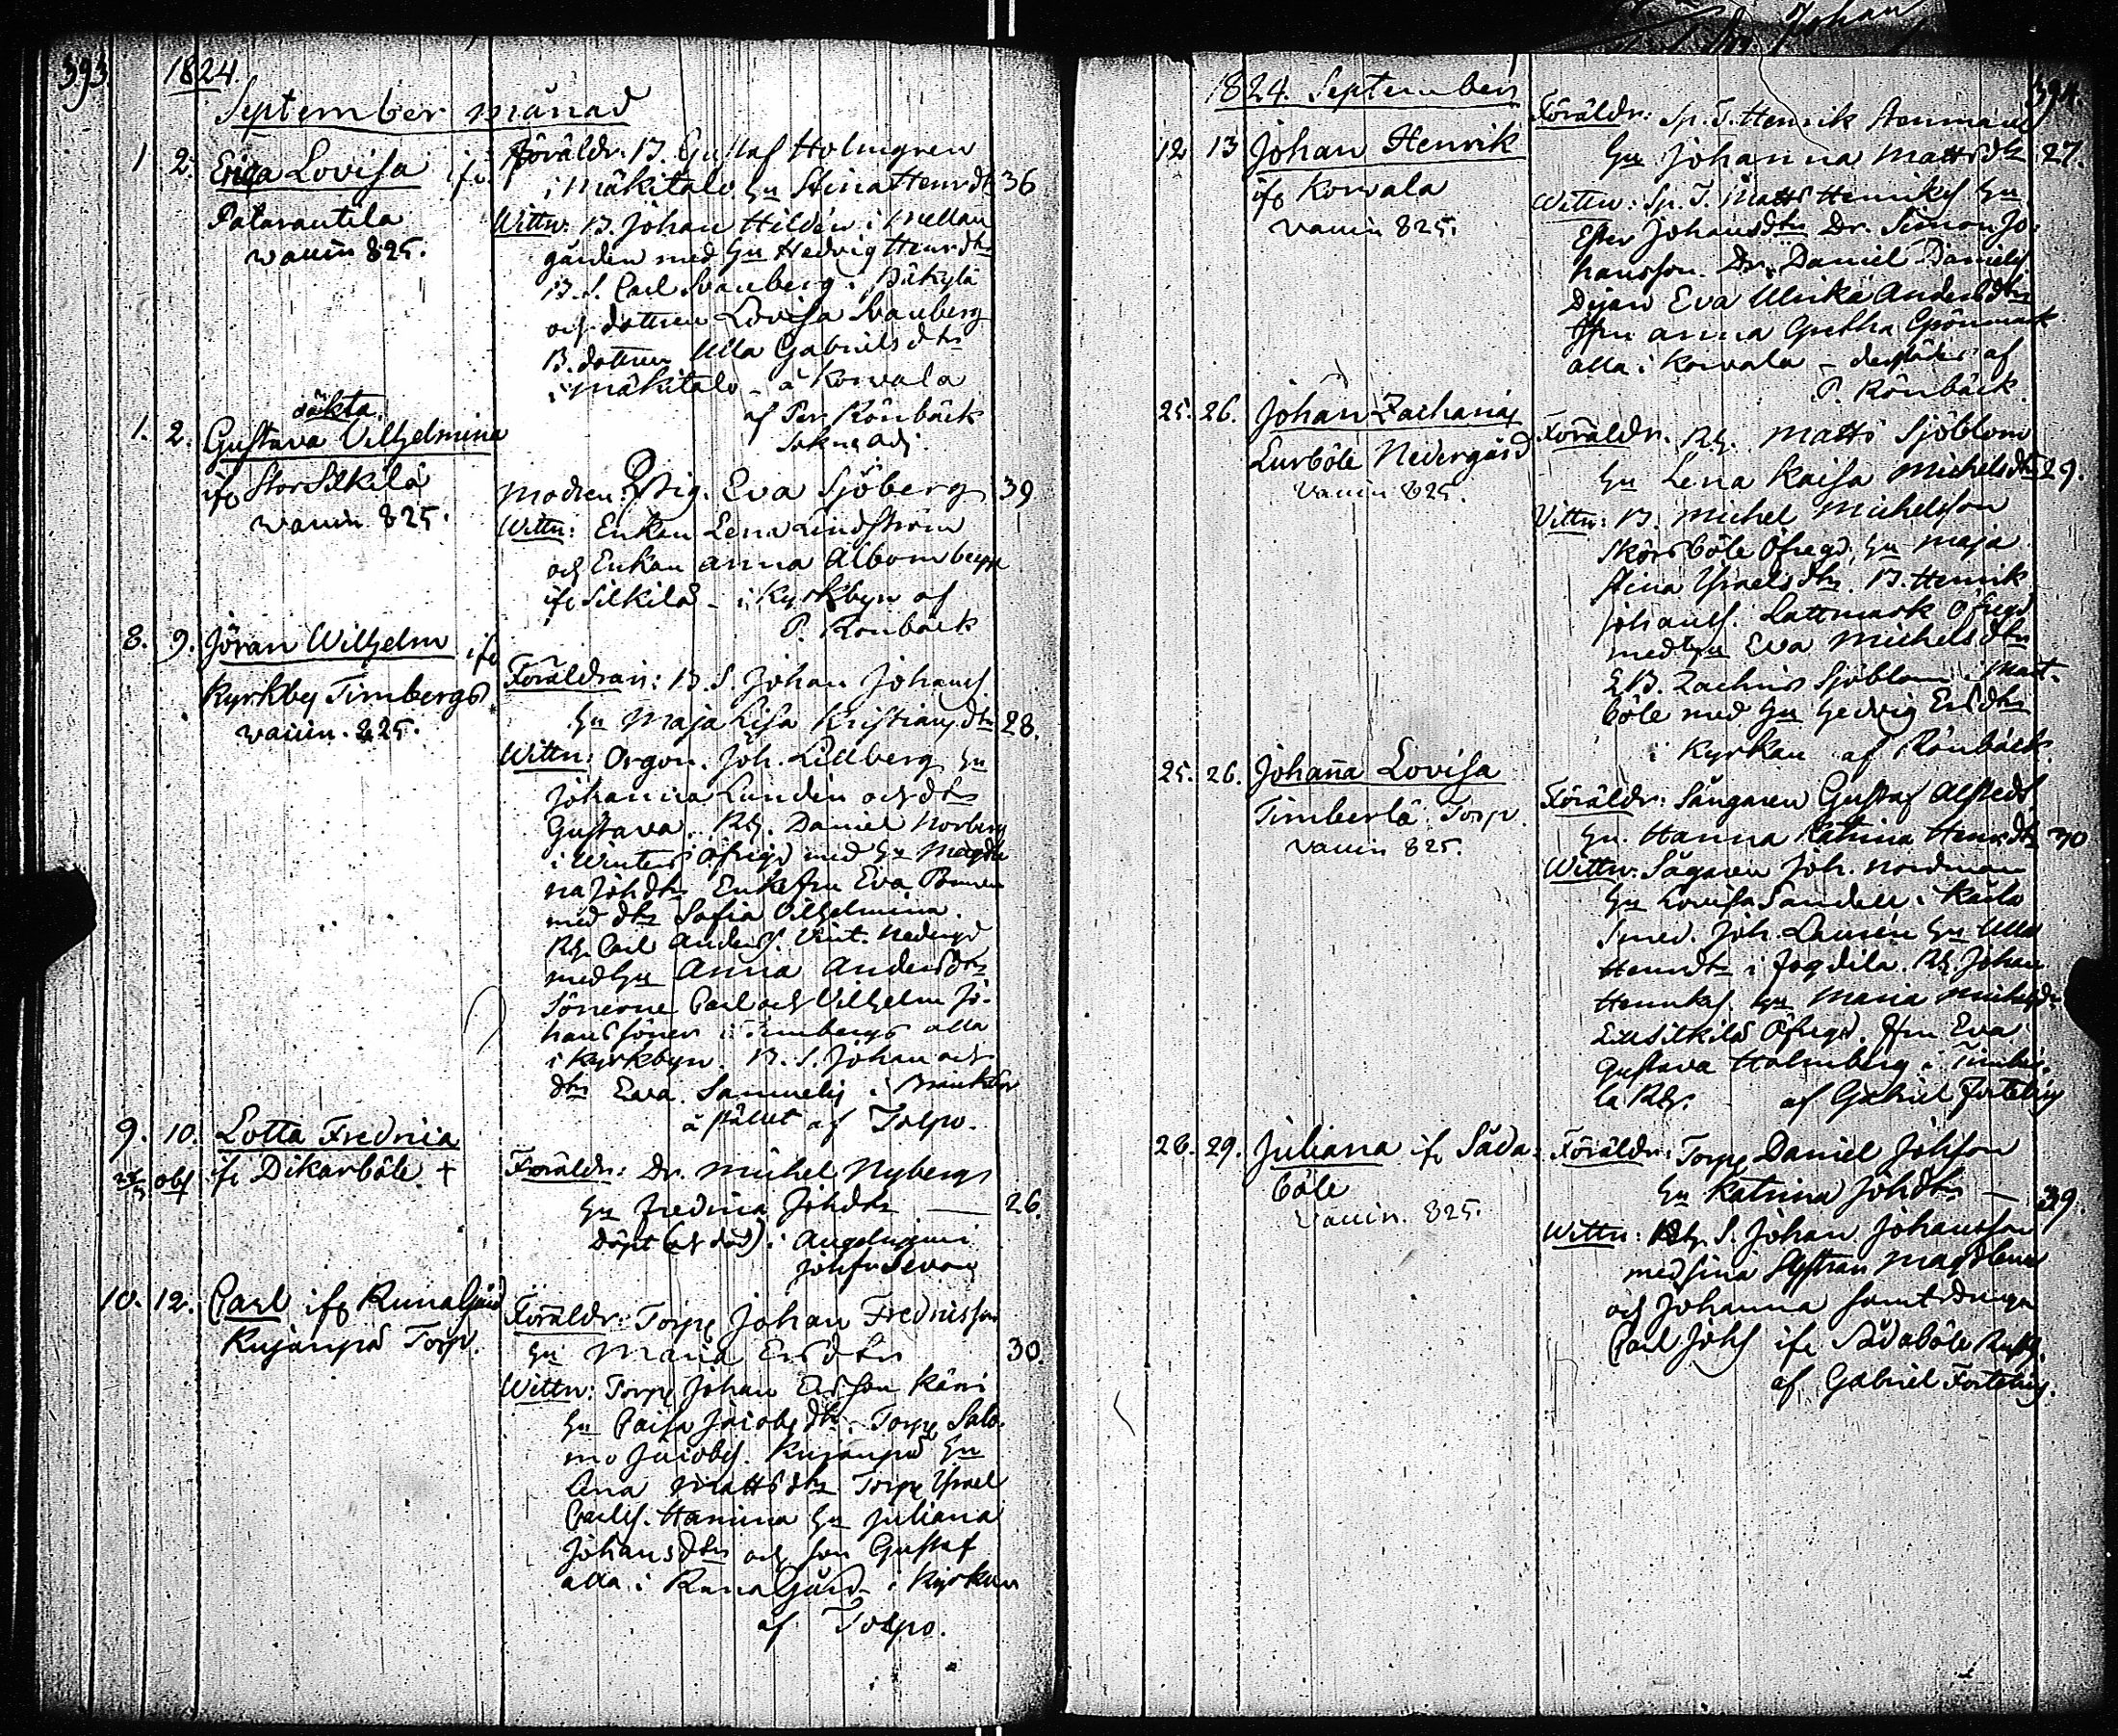 393
1824.
September månad
1 2. Erica Lovisa ifr.
Patarautila
vaccin 825.
Föräldr. B. Gustaf Holmgren
i Mäkitalo Hu Stina Henrdtr 36
Wittn: B. Johan Hildén i Mellan
gården med Hu Hedvig Henrdtr
B. S. Carl Svanberg i
och dottren Lovisa Svanberg
B. dottren Ulla Gabrielsdtr
i Mäkitalo - å Korvala
af Per Rönbäck
Sokne Adj
oäkta
1. 2. Gustava Vilhelmina
ifr Stor Silkilä
vaccin 825.
Modren: Pig. Eva Sjöberg 39
Wittn: Enkan Lena Lindström
och Enkan Anna
ifr Silkilä - i Kyrkbyn af
P. Rönbäck
8. 9. Jöran Wilhelm ifr
Kyrkby Timbergs
vaccin. 825.
Föräldrar: B. S. Johan Johanss.
Hu Maja Lisa Kristiansdtr 28.
Wittn: Orgon. Joh. Lillberg Hu
Johanna Lundin och dtr
Gustava. Rh. Daniel Norberg
i Winters Öfregd med Hu Magda
na Johdtr Enkefru Eva
med dtr Sofia Vilhelmina.
Rh. Carl Anderss. Vint. Nedergd
med Hu Anna Andersdtr
Sönerne Carl och Vilhelm Jo-
hans söner i Timbergs alla
i Kyrkbyn. B. S. Johan och
dtr Eva Samuels i
å stället af Tolpo.
9. 10. Lotta Fredrica
obs ifr Dikarböle +
Föräldr: Dr. Michel Nyberg
Hu Fredrica Johdtr — 26.
Döpt (och död) i Angelniemi
10. 12. Carl ifr Runagård
Kujanpä Torp.
Föräldr: Torp. Johan Fredricsson
Hu Maria Ersdtr 30.
Wittn: Torp. Johan Ersson
Hu Caisa Jacobsdtr. Torp. Salo-
mo Jacobss. Kujanpä Hu
Lena Mattsdtr Torp. Israel
Carlss. Hamina Hu Juliana
Johansdtr och son Gustaf
alla i Runagård - i Kyrkan
af Tolpo.
Johan
394.
1824. September
12 13 Johan Henrik
ifr Korvala
vaccin 825.
Föräldr: Sp. T. Henrik Stenman
Hu Johanna Mattsdtr 27.
Wittn: Sp. T. Matts Henrikss Hu
Ester Johansdtr Dr. Simon Jo-
hansson. Dr. Daniel Daniels
Pigan Eva Ulrika Andersdtr
Jfru Anna Gretha Grönmark
alla i Korvala - derstädes af
P. Rönbäck.
25. 26. Johan Zacharias
Lurböle Nedergård
vaccin 825.
Föräldr. Rh. Matts Sjöblom
Hu Lena Kaisa Michelsdtr 29.
Vittn: B. Michel Michelsson
Skörböle Öfregd. Hu Maja
Stina Israelsdtr. B. Henrik
Johanss. Lattmark Öfregd
med Hu Eva Michelsdtr
E.B. Zachris Sjöblom i Matt-
böle med Hu Hedvig Ersdtr
i Kyrkan af Rönbäck.
25. 26. Johanna Lovisa
Timberlä Torp.
vaccin 825.
Föräldr: Sångaren Gustaf Alfstedt
Hu. Hanna Katrina Henrdtr 30
Wittn: Sågaren Joh. Nordman
Hu Lovisa Sandell i
Smed. Joh. Laurén Hu Ulla
Henrdtr i Jogdila. Rh. Johan
Henrikss. Hu Maria Michelsdtr
Lill Silkilä Öfregd. Jfru Eva
Gustava Holmberg i Timber-
la Rh. af Gabriel Forteling
28. 29. Juliana ifr Såda-
böle
vaccin. 825.
Föräldr: Torp. Daniel Johsson
Hu Katrina Johdtr — 39.
Wittn: Rh. S. Johan Johansson
med sina Systrar Magdlena
och Johanna samt Drängen
Carl Johss ifr Sådaböle Rusth.
af Gabriel Forteling.